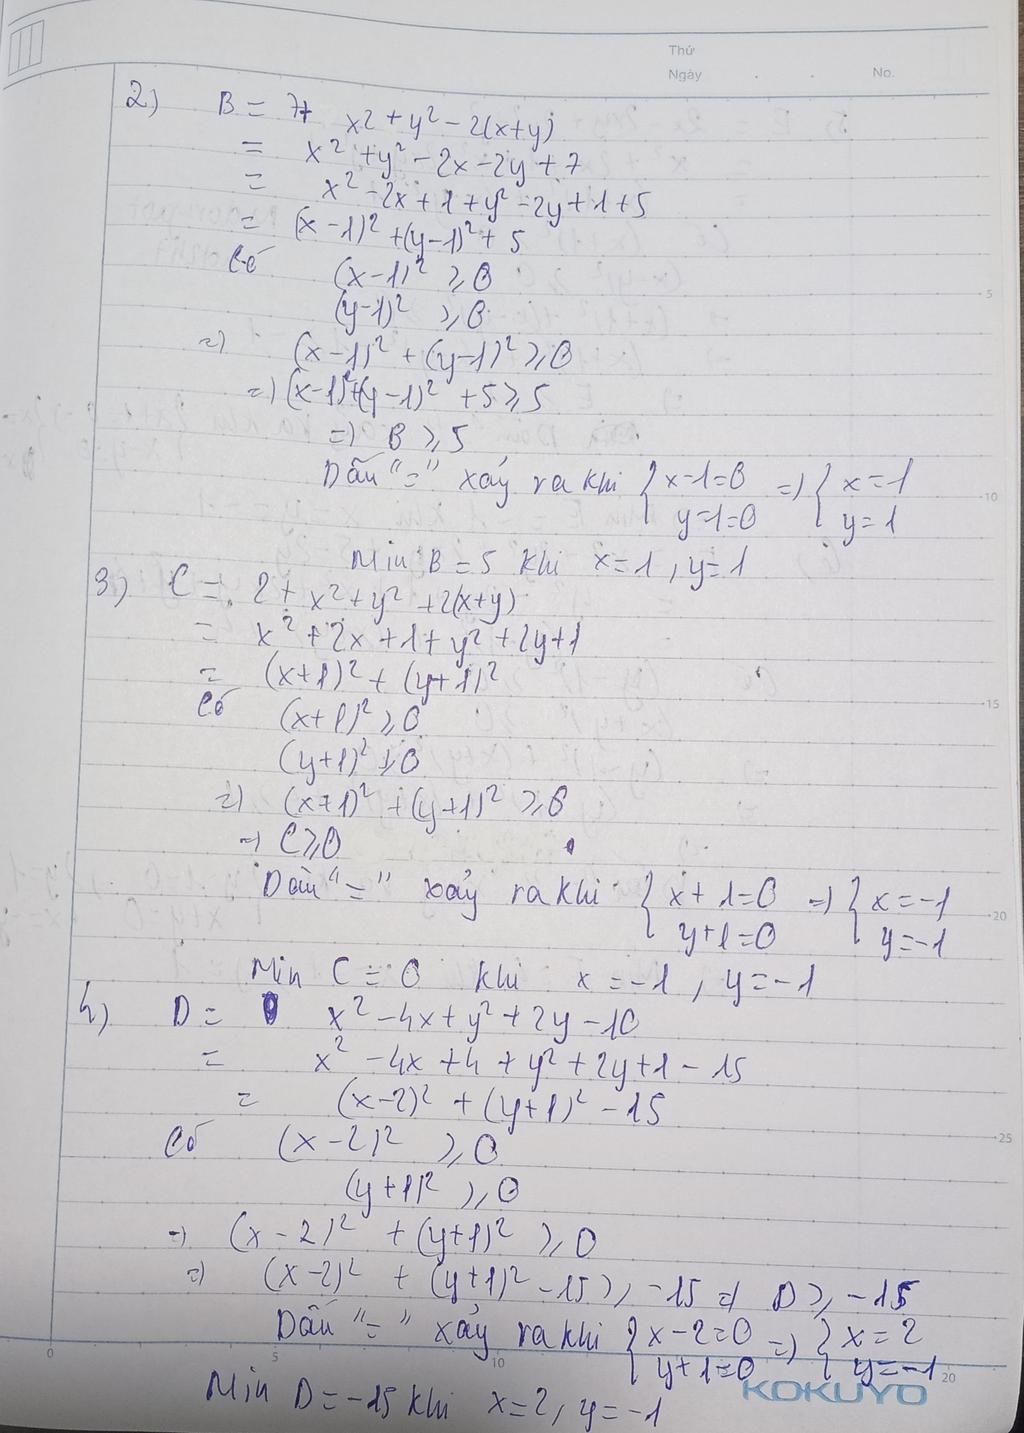 Thứ
Ngày . . No.
2) B = 7+ x² + y² - 2(x+y)
= x² + y² - 2x - 2y + 7
= x² - 2x + 1 + y² - 2y + 1 + 5
= (x-1)² + (y-1)² + 5
Có (x-1)² ⩾ 0
(y-1)² ⩾ 0
=) (x-1)² + (y-1)² ⩾ 0
=) (x-1)²+(y-1)² + 5 ⩾ 5
=) B ⩾ 5
Dấu "=" xảy ra khi { x-1=0 =) { x=1
y-1=0 y=1
Min B = 5 khi x=1, y=1
3) C = 2 + x² + y² + 2(x+y)
= x² + 2x + 1 + y² + 2y + 1
= (x+1)² + (y+1)²
Có (x+1)² ⩾ 0
(y+1)² ⩾ 0
=) (x+1)² + (y+1)² ⩾ 0
=) C ⩾ 0
Dấu "=" xảy ra khi { x+1=0 =) { x=-1
y+1=0 y=-1
Min C = 0 khi x=-1, y=-1
4) D = x² - 4x + y² + 2y - 10
= x² - 4x + 4 + y² + 2y + 1 - 15
= (x-2)² + (y+1)² - 15
Có (x-2)² ⩾ 0
(y+1)² ⩾ 0
=) (x-2)² + (y+1)² ⩾ 0
=) (x-2)² + (y+1)² - 15 ⩾ -15 =) D ⩾ -15
Dấu "=" xảy ra khi { x-2=0 =) { x=2
y+1=0 y=-1
Min D = -15 khi x=2, y=-1
5
10
15
20
25
0 5 10 20
KOKUYO